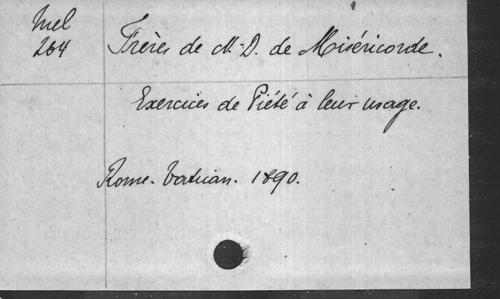 Mel
264
Frères de N-D. de Miséricorde.
Exercices de Piété à leur usage.
Rome. Vatican. 1890.